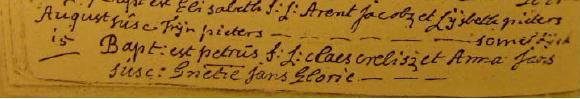 Bapt: est Elisabeth f: l: Arent Jacobz et Lijsbette pieters
August susc Trijn pieters — — — — — — —
15 Bapt: est petrus f: l: claes crelisz et Anna Jans
susc: Grietie Jans Glorie — — —